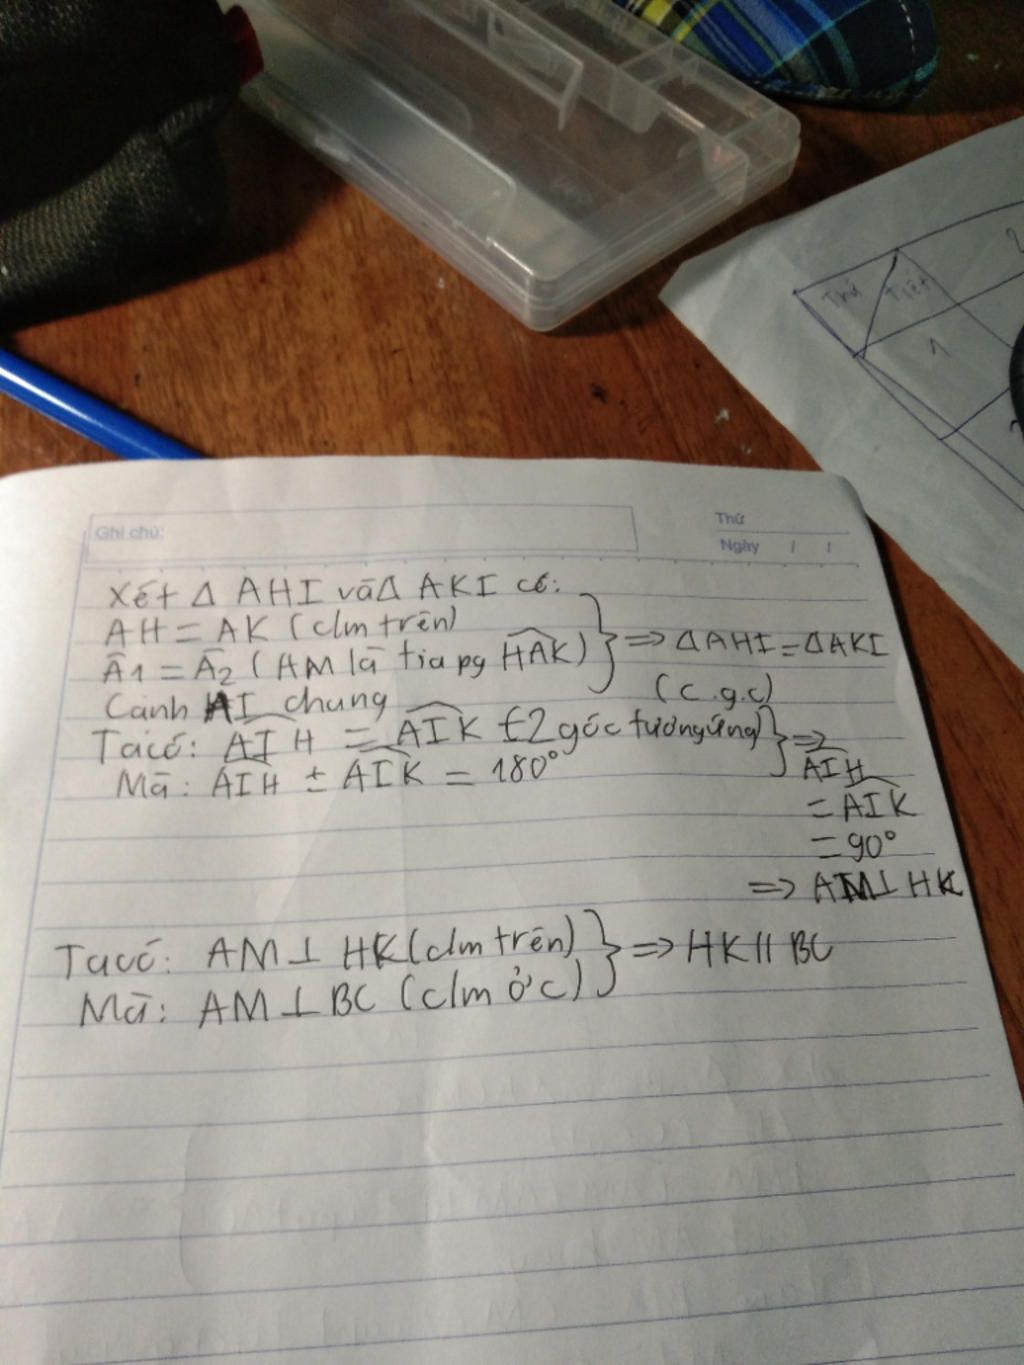 Thứ Tiết 2
1
Ghi chú:
Thứ
Ngày / /
Xét Δ AHI và Δ AKI có:
AH = AK (c/m trên)
Â1 = Â2 (AM là tia pg HAK) } => ΔAHI = ΔAKI
Cạnh AI chung (c.g.c)
Ta có: AIH = AIK (2 góc tương ứng) } =>
Mà: AIH + AIK = 180° AIH
= AIK
= 90°
=> AM ⊥ HK
Ta có: AM ⊥ HK (c/m trên) } => HK // BC
Mà: AM ⊥ BC (c/m ở c)